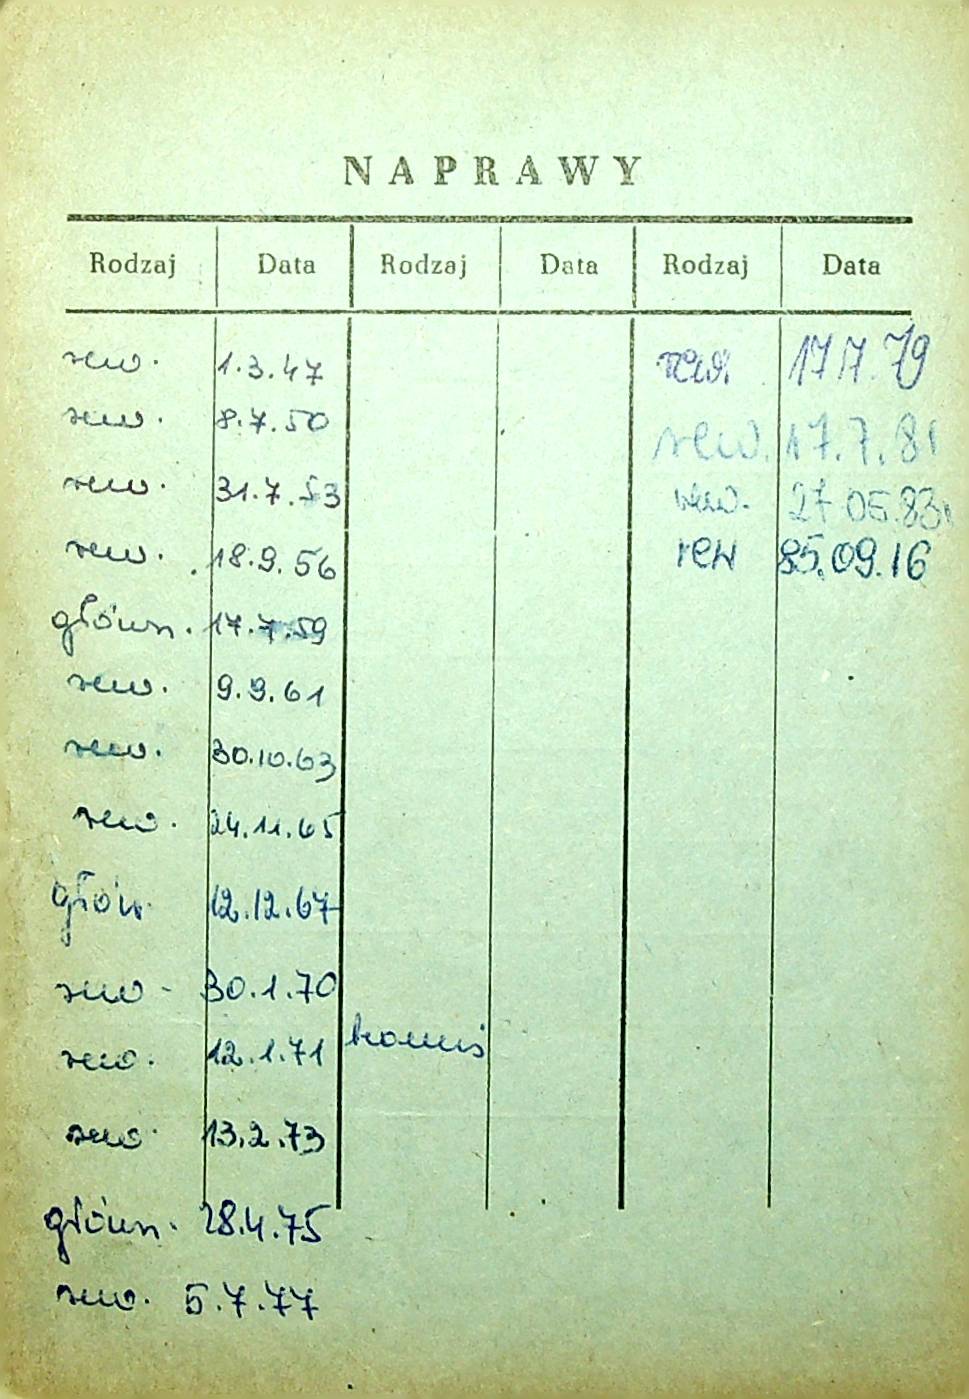 NAPRAWY
Rodzaj Data Rodzaj Data Rodzaj Data
rew. 1.3.47
rew. 8.7.50
rew. 31.7.53
rew. 18.9.56
główn. 17.7.59
rew. 9.9.61
rew. 30.10.63
rew. 24.11.65
główn. 12.12.67
rew - 30.1.70
rew. 12.1.71 komis
rew. 13.2.73
główn. 28.4.75
rew. 5.7.77
rew. 17.7.79
rew. 17.7.81
rew. 27.05.83
rew 85.09.16